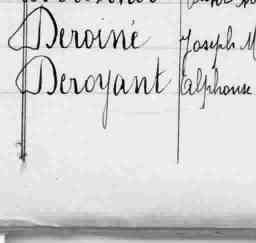 Deroiné Joseph M
Deroyant Alphonse